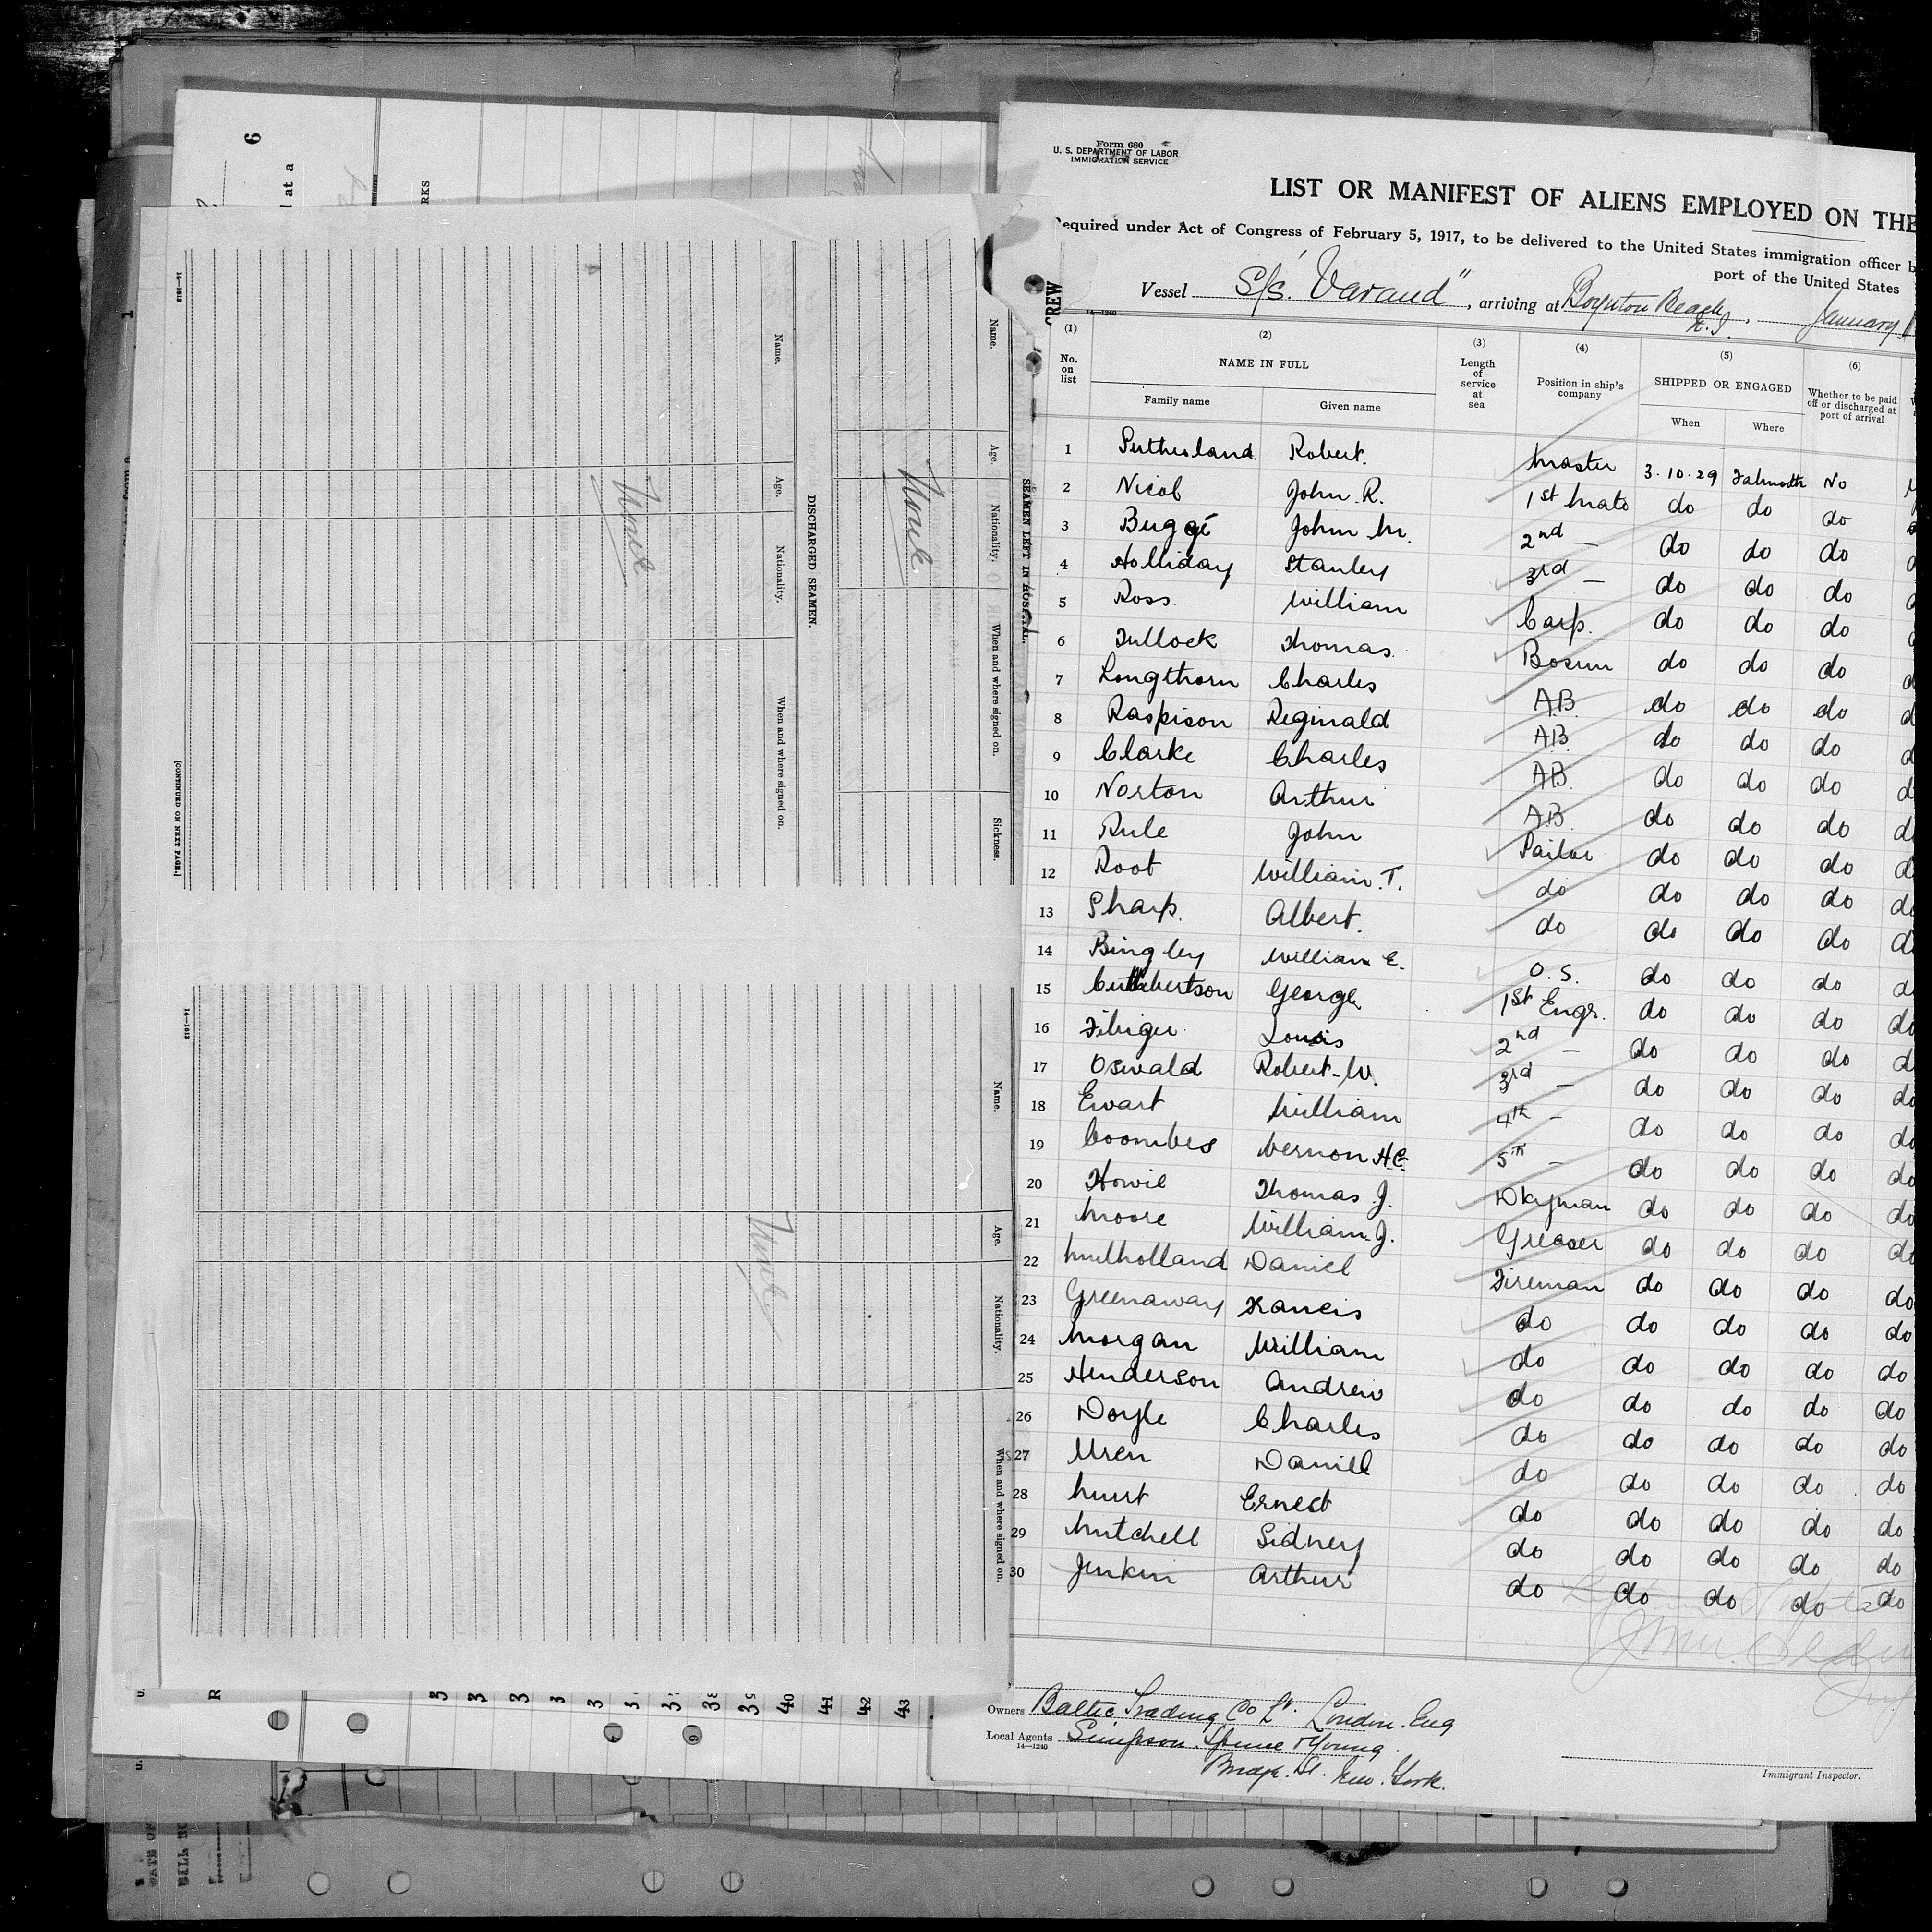 Form 680
U. S. DEPARTMENT OF LABOR
IMMIGRATION SERVICE
LIST OR MANIFEST OF ALIENS EMPLOYED ON THE
Required under Act of Congress of February 5, 1917, to be delivered to the United States immigration officer b
port of the United States
Vessel S/S. "Varand", arriving at Boynton Beach, N.J., January
14—1240
CREW
(1) (2) (3) (4) (5) (6)
No. on list NAME IN FULL Length of service at sea Position in ship's company SHIPPED OR ENGAGED Whether to be paid off or discharged at port of arrival
Family name Given name When Where
1 Sutherland Robert. Master 3.10.29 Falmouth No
2 Nicol John R. 1st Mate do do do
3 Buggé John M. 2nd — do do do
4 Holliday Stanley 3rd — do do do
5 Ross William Carp. do do do
6 Tullock Thomas Bosun do do do
7 Longthorn Charles A.B. do do do
8 Raspison Reginald A.B. do do do
9 Clarke Charles A.B. do do do
10 Norton Arthur A.B. do do do
11 Rule John Sailor do do do
12 Root William. T. do do do do
13 Sharp. Albert. do do do do
14 Bingley William E. O.S. do do do
15 Cuthbertson George 1st Engr. do do do
16 Louis 2nd — do do do
17 Oswald Robert. W. 3rd — do do do
18 Ewart William 4th — do do do
19 Coombes Vernon H.C. 5th — do do do
20 Howie Thomas J. Dkyman do do do
21 Moore William J. Greaser do do do
22 Mulholland Daniel Fireman do do do
23 Greenaway Francis do do do do
24 Morgan William do do do do do
25 Henderson Andrew do do do do do
26 Doyle Charles do do do do do
27 Uren Daniel do do do do do
28 Ernest do do do do do
29 Mitchell Sidney do do do do do
30 Jenkin Arthur do do do do do
Owners Baltic Trading Co Ld. London. Eng
Local Agents Simpson Spence & Young.
14—1240
Bridge. St. New. York.
Immigrant Inspector.
SEAMEN LEFT IN HOSPITAL.
Name. Age. Nationality. When and where signed on. Sickness.
None
DISCHARGED SEAMEN.
Name. Age. Nationality. When and where signed on.
None
14—1613
[CONTINUED ON NEXT PAGE.]
Name. Age. Nationality. When and where signed on.
None
14—1613
6
d at a
RKS
1
R
39
40
41
42
43